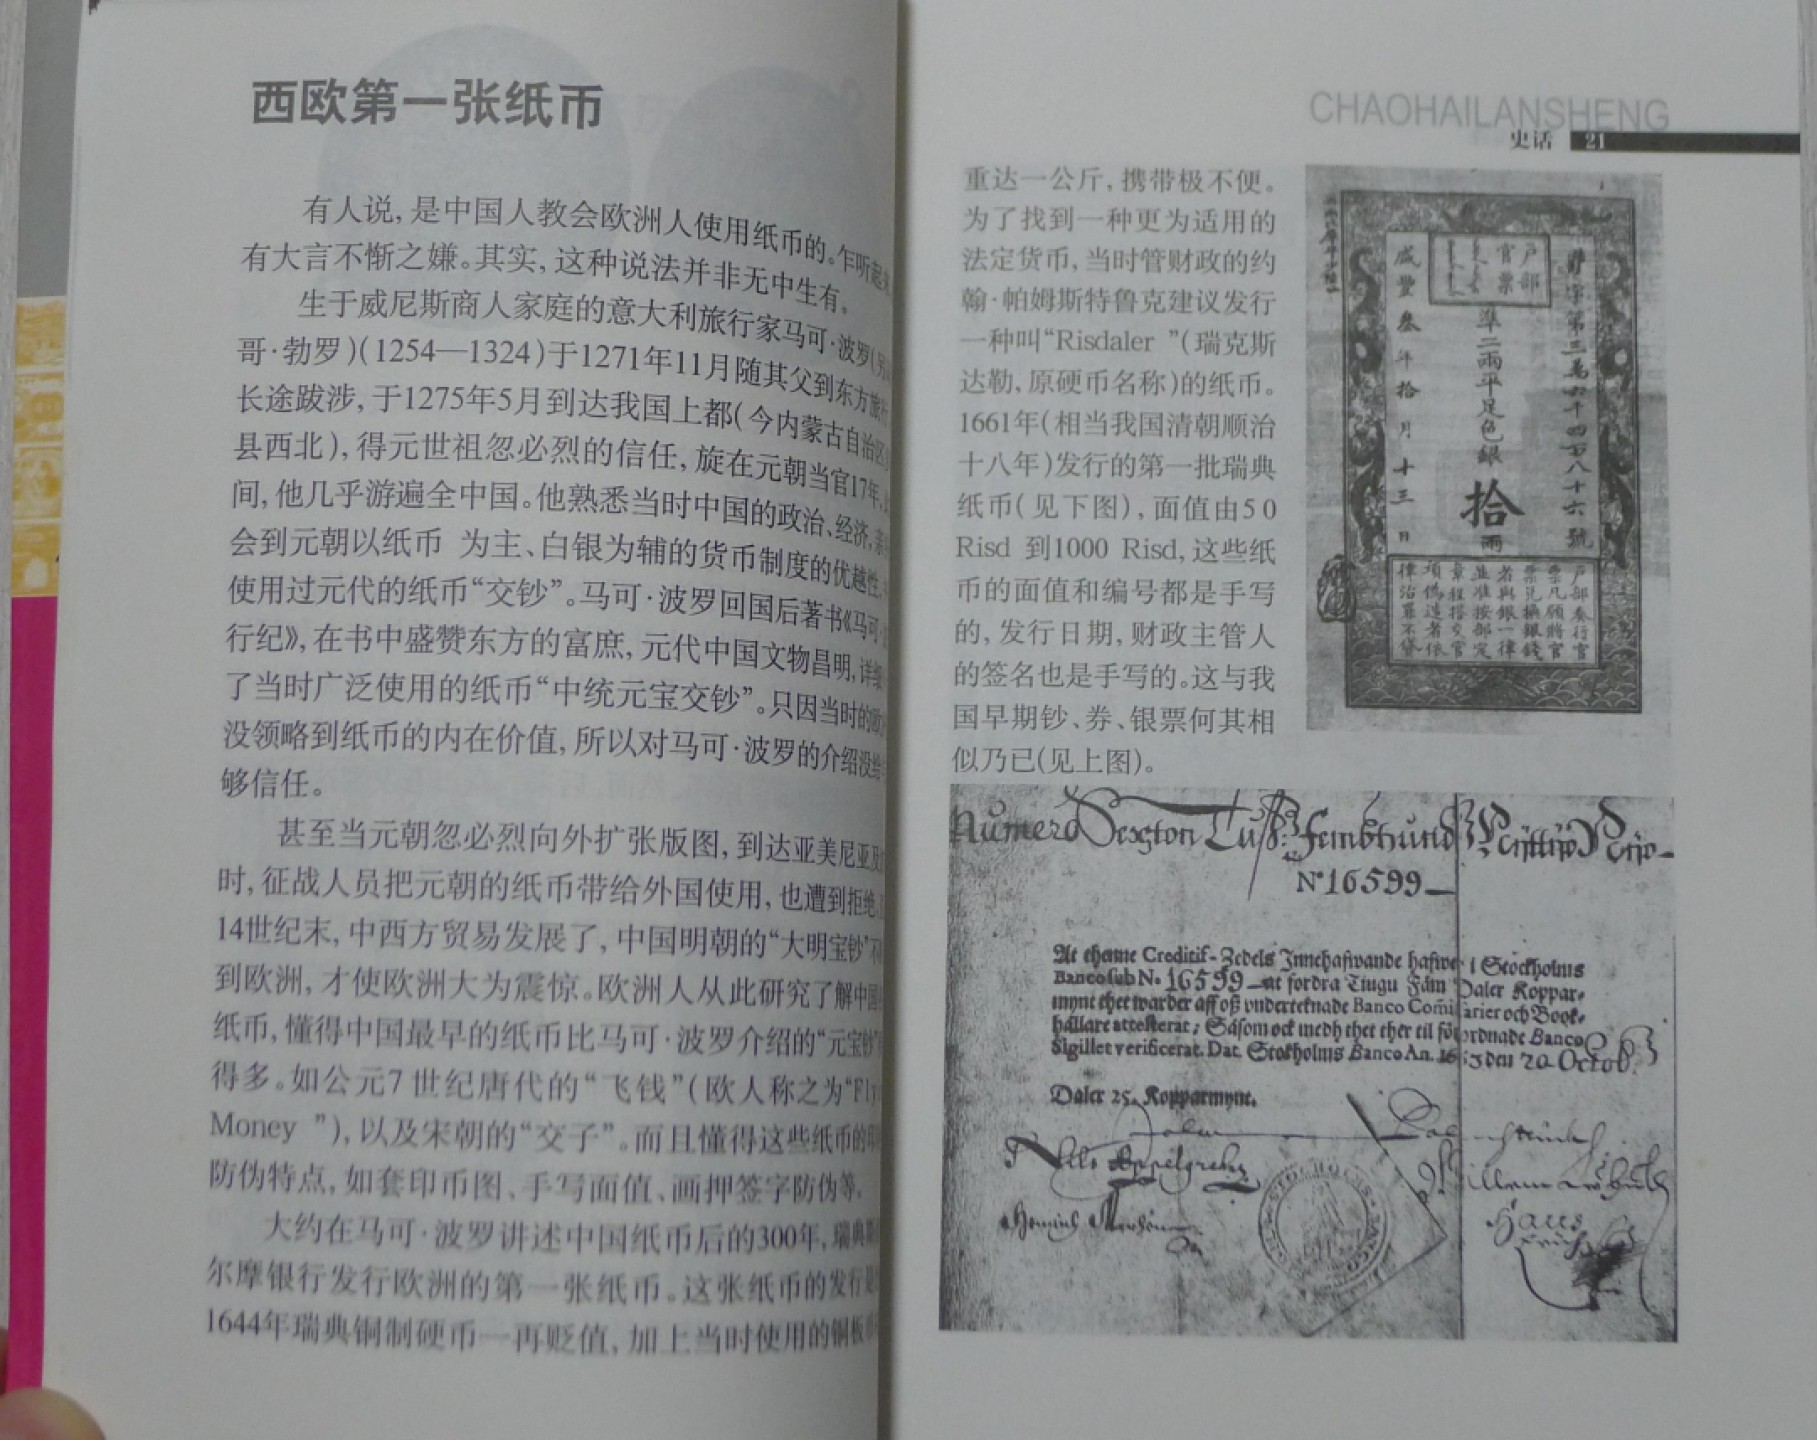 西欧第一张纸币
有人说,是中国人教会欧洲人使用纸币的。乍听起来
有大言不惭之嫌。其实,这种说法并非无中生有。
生于威尼斯商人家庭的意大利旅行家马可·波罗(
哥·勃罗)(1254—1324)于1271年11月随其父到东方旅行
长途跋涉,于1275年5月到达我国上都(今内蒙古自治区
县西北),得元世祖忽必烈的信任,旋在元朝当官17年,
间,他几乎游遍全中国。他熟悉当时中国的政治、经济,亲
会到元朝以纸币 为主、白银为辅的货币制度的优越性,
使用过元代的纸币“交钞”。马可·波罗回国后著书《马可·
行纪》,在书中盛赞东方的富庶,元代中国文物昌明,详细
了当时广泛使用的纸币“中统元宝交钞”。只因当时的欧
没领略到纸币的内在价值,所以对马可·波罗的介绍没给
够信任。
甚至当元朝忽必烈向外扩张版图,到达亚美尼亚及
时,征战人员把元朝的纸币带给外国使用,也遭到拒绝。
14世纪末,中西方贸易发展了,中国明朝的“大明宝钞”不
到欧洲,才使欧洲大为震惊。欧洲人从此研究了解中国
纸币,懂得中国最早的纸币比马可·波罗介绍的“元宝钞”
得多。如公元7世纪唐代的“飞钱”(欧人称之为“Fly
Money ”),以及宋朝的“交子”。而且懂得这些纸币的印
防伪特点,如套印币图、手写面值、画押签字防伪等。
大约在马可·波罗讲述中国纸币后的300年,瑞典斯
尔摩银行发行欧洲的第一张纸币。这张纸币的发行是
1644年瑞典铜制硬币一再贬值,加上当时使用的铜板
CHAOHAILANSHENG
史话 21
重达一公斤,携带极不便。
为了找到一种更为适用的
法定货币,当时管财政的约
翰·帕姆斯特鲁克建议发行
一种叫“Risdaler ”(瑞克斯
达勒,原硬币名称)的纸币。
1661年(相当我国清朝顺治
十八年)发行的第一批瑞典
纸币(见下图),面值由50
Risd 到1000 Risd,这些纸
币的面值和编号都是手写
的,发行日期,财政主管人
的签名也是手写的。这与我
国早期钞、券、银票何其相
似乃已(见上图)。
户部
官票
字第三万六千四百八十六號
準二兩平足色銀
拾
兩
咸豐叁年拾月十三日
戶部奏行官
票凡願將官
票兌換銀錢
者與銀一律
並准按部定
章程搭交官
項偽造者依
律治罪不貸
Numero Sexton Tus
N° 16599
At thenne Creditif-Zedels Innehafwande hafwer i Stockholms
Banco sub No. 16599 at fordra Tiugu Fäm Daler Koppar-
mynt thet warder aff oß underteknade Banco Commissarier och Book-
hållare attesterat; Såsom ock medh thet ther til förordnade Banco
Sigillet verificerat. Dat. Stokholms Banco An. 1663 den 20 Octob.
Daler 25. Kopparmynt.